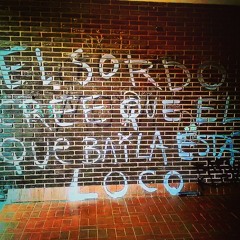 EL SORDO
CREE QUE EL
QUE BAILA ESTA
LOCO